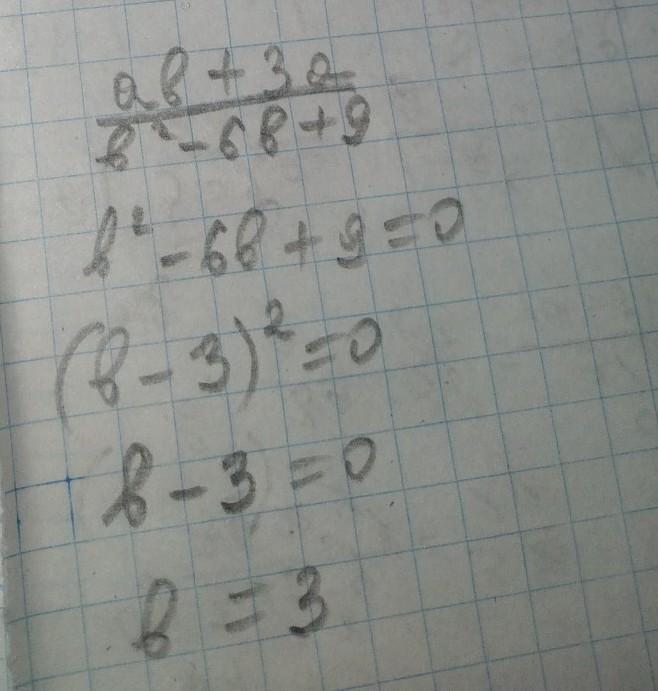 ab + 3a
b² - 6b + 9
b² - 6b + 9 = 0
(b - 3)² = 0
b - 3 = 0
b = 3